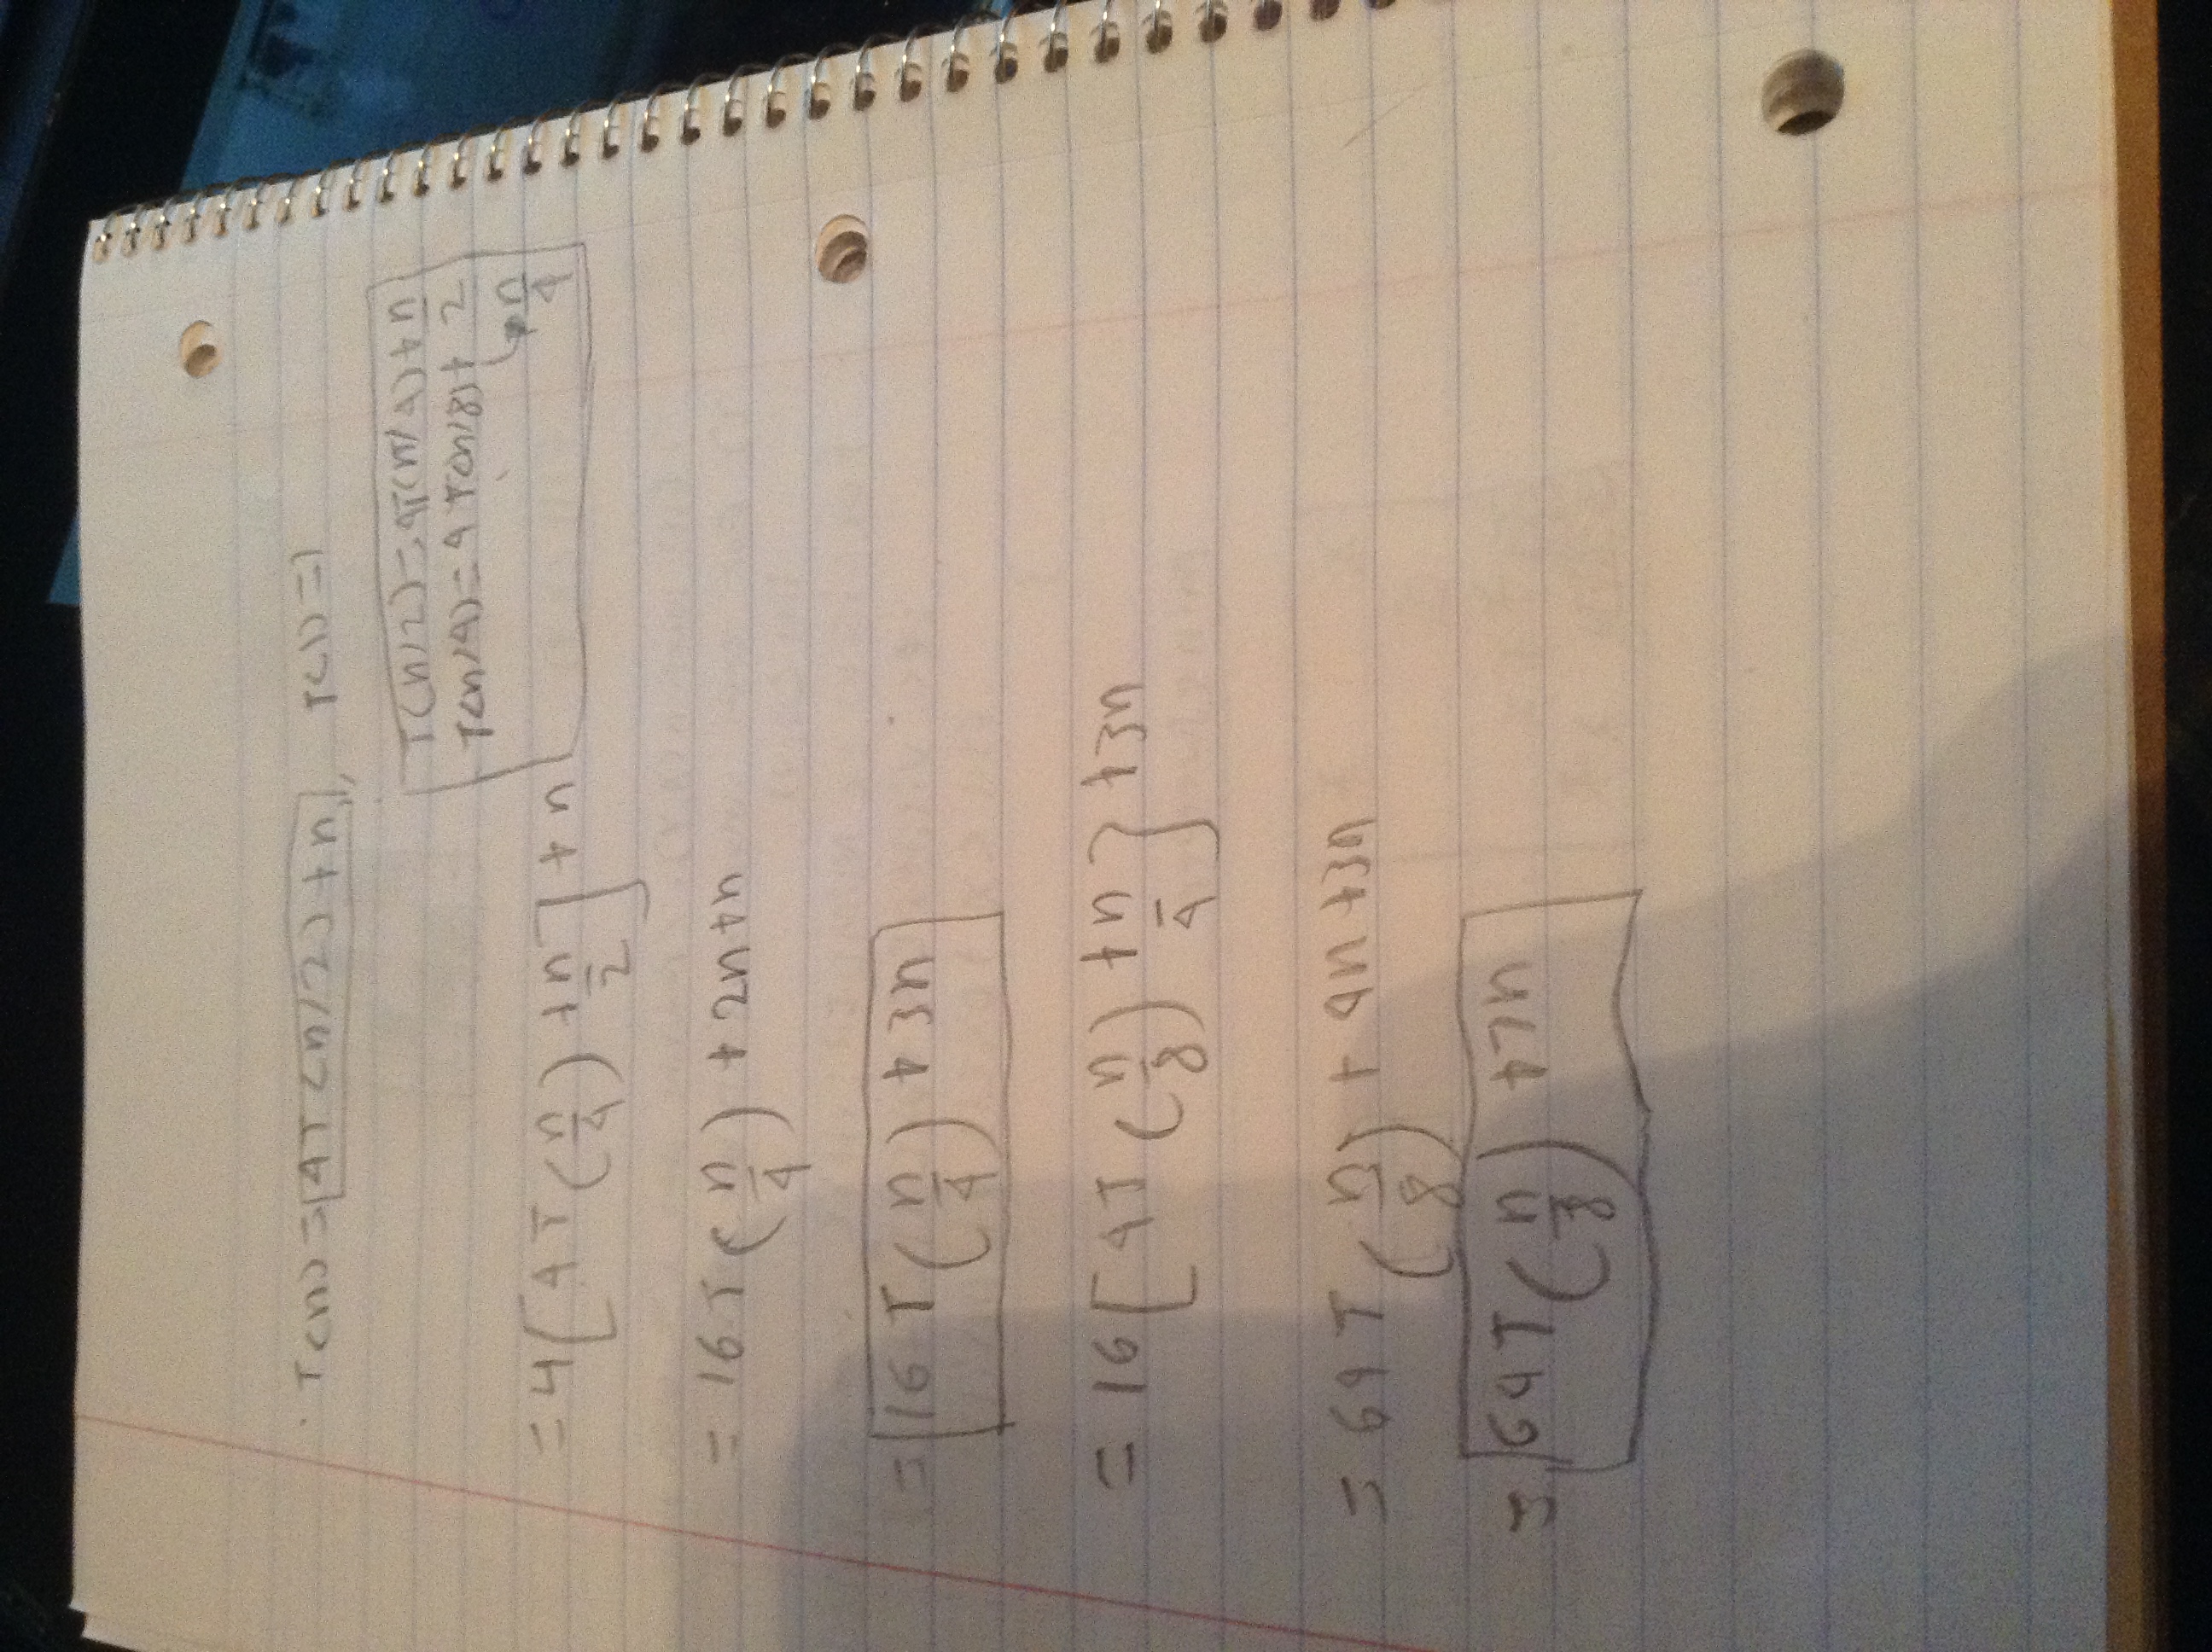 T(n) = 4T(n/2) + n, T(1) = 1
T(n/2) = 4T(n/4) + n/2
T(n/4) = 4T(n/8) + n/4
= 4[4T(n/4) + n/2] + n
= 16T(n/4) + 2n + n
= 16T(n/4) + 3n
= 16[4T(n/8) + n/4] + 3n
= 64T(n/8) + 4n + 3n
= 64T(n/8) + 7n